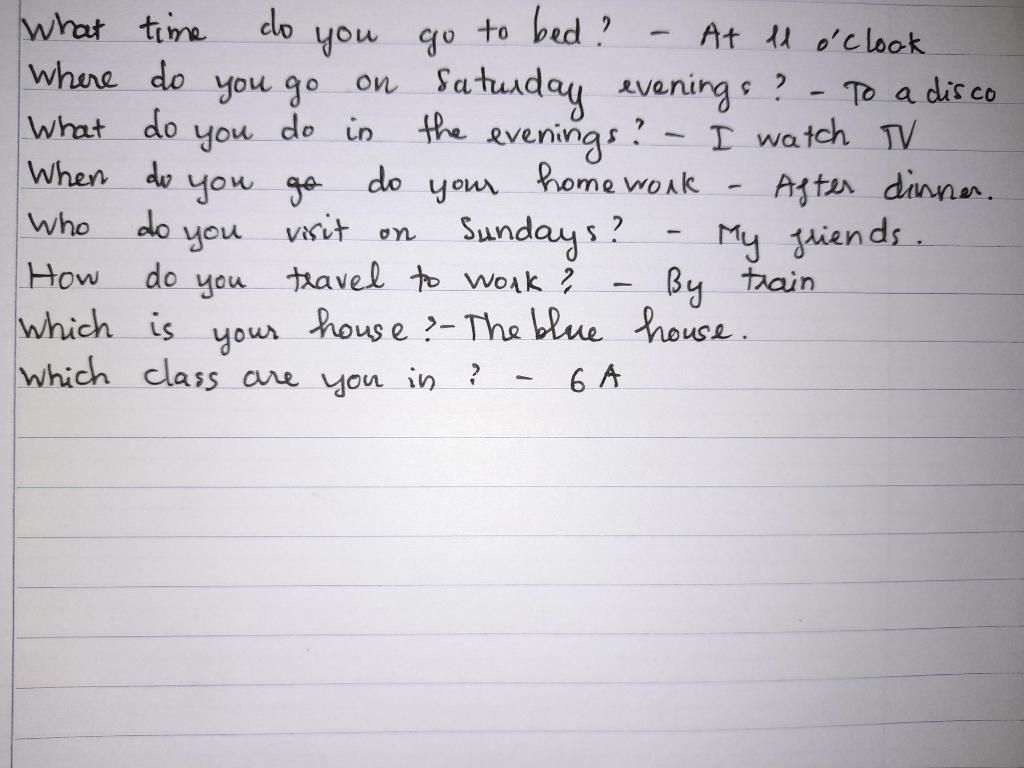 What time do you go to bed? - At 11 o'clock
Where do you go on Saturday evenings? - To a disco
What do you do in the evenings? - I watch TV
When do you go do your homework - After dinner.
Who do you visit on Sundays? - My friends.
How do you travel to work? - By train
Which is your house? - The blue house.
Which class are you in? - 6 A